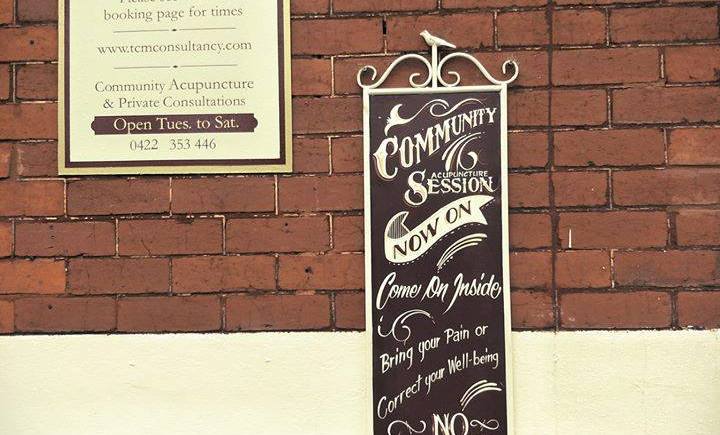 booking page for times
www.tcmconsultancy.com
Community Acupuncture
& Private Consultations
Open Tues. to Sat.
0422 353 446
COMMUNITY
ACUPUNCTURE
SESSION
NOW ON
Come On Inside
Bring your Pain or
Correct your Well-being
NO